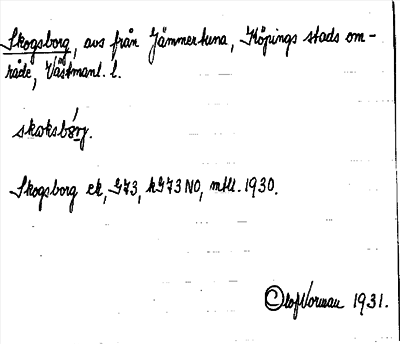 Skogsborg, avs från Jämmertuna, Köpings stads om-
råde, Västmanl. l.
skoksbórj.
Skogsborg ek, G73, kG73 NO, mtll. 1930.
Olof Norman 1931.